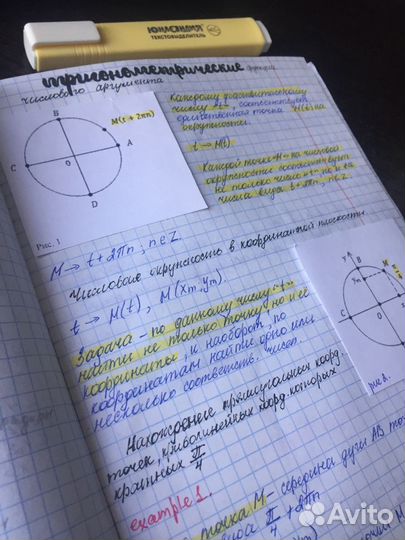 ЮНЛАНДИЯ
ТЕКСТОВЫДЕЛИТЕЛЬ
тригонометрические функции
числового аргумента
Каждому действительному
числу "t" соответствует
единственная точка M(t) на
окружности.
t → M(t).
Каждой точке M на числовой
окружности соответствует
не только число "t", но и все
числа вида t+2πn, n∈Z.
B
M(t + 2πn)
A
C
O
D
Рис. 1
M → t+2πn, n∈Z.
Числовая окружность в координатной плоскости
t → M(t), M(xм, yм)
Задача - по данному числу "t"
найти не только точку, но и её
координаты, и наоборот, по
координатам найти одно или
несколько соответств. чисел.
y
B
M
yм
C
рис 2.
Нахождение прямоугольных коорд.
точек, криволинейных коорд. которых
кратны π/4
example 1.
точка M - середина дуги AB
π/4 + 2πn
Avito